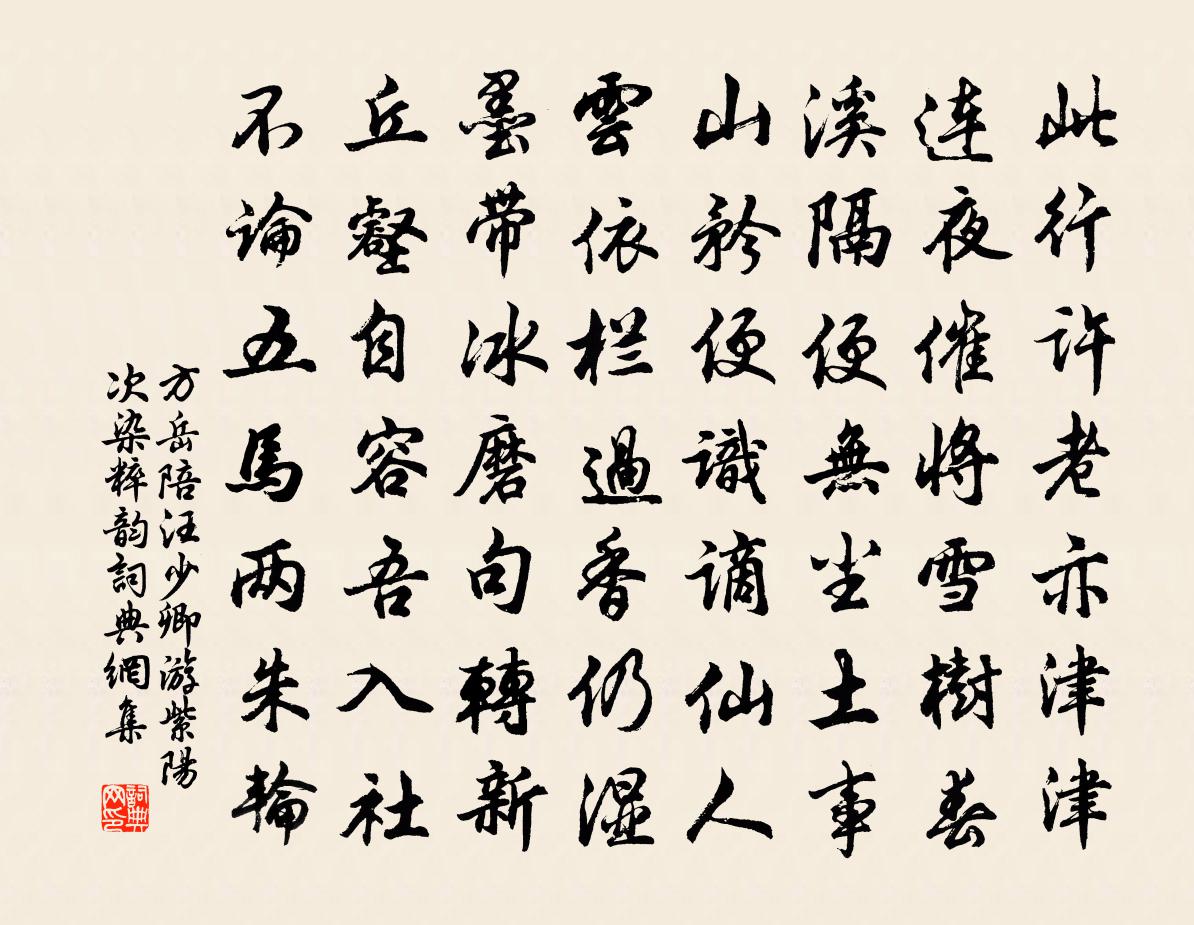 此行許老亦津津
連夜催將雪樹春
溪隔便無尘土事
山矜便識谪仙人
雲依栏過香仍湿
墨帶冰磨句轉新
丘壑自容吾入社
不論五馬两朱輪
方岳陪汪少卿游紫陽
次染粹韵詞典網集
詞典
网印